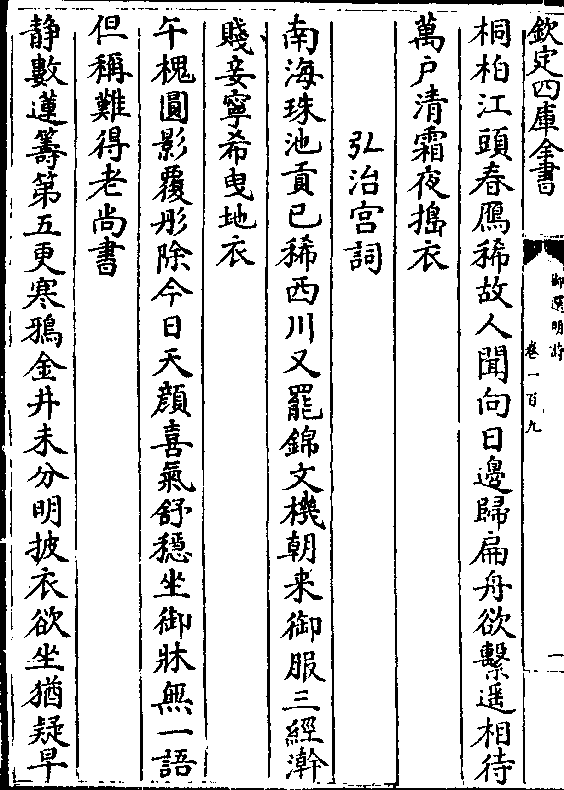 欽定四庫全書
御選明詩
卷一百九
一
桐柏江頭春鴈稀故人聞向日邊歸扁舟欲繫遥相待
萬户清霜夜搗衣
弘治宫詞
南海珠池貢已稀西川又罷錦文機朝来御服三經澣
賤妾寧希曳地衣
午槐圓影覆彤除今日天顔喜氣舒穩坐御牀無一語
但稱難得老尚書
静數蓮籌第五更寒鴉金井未分明披衣欲坐猶疑早